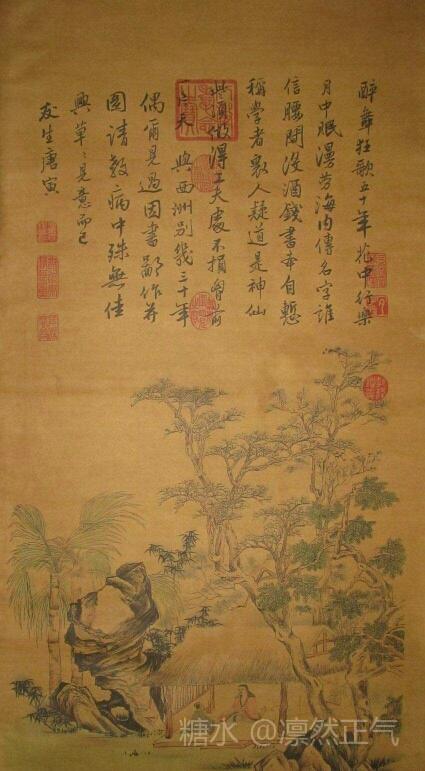 醉舞狂歌五十年花中行樂
月中眠漫勞海内傳名字誰
信腰間没酒錢書本自慙
稱學者衆人疑道是神仙
些須做得工夫處不損胷前
天與西洲别幾三十年
偶爾見過因書鄙作并
圖請教病中殊無佳
興草〻見意而已
友生唐寅
糖水 @凛然正气